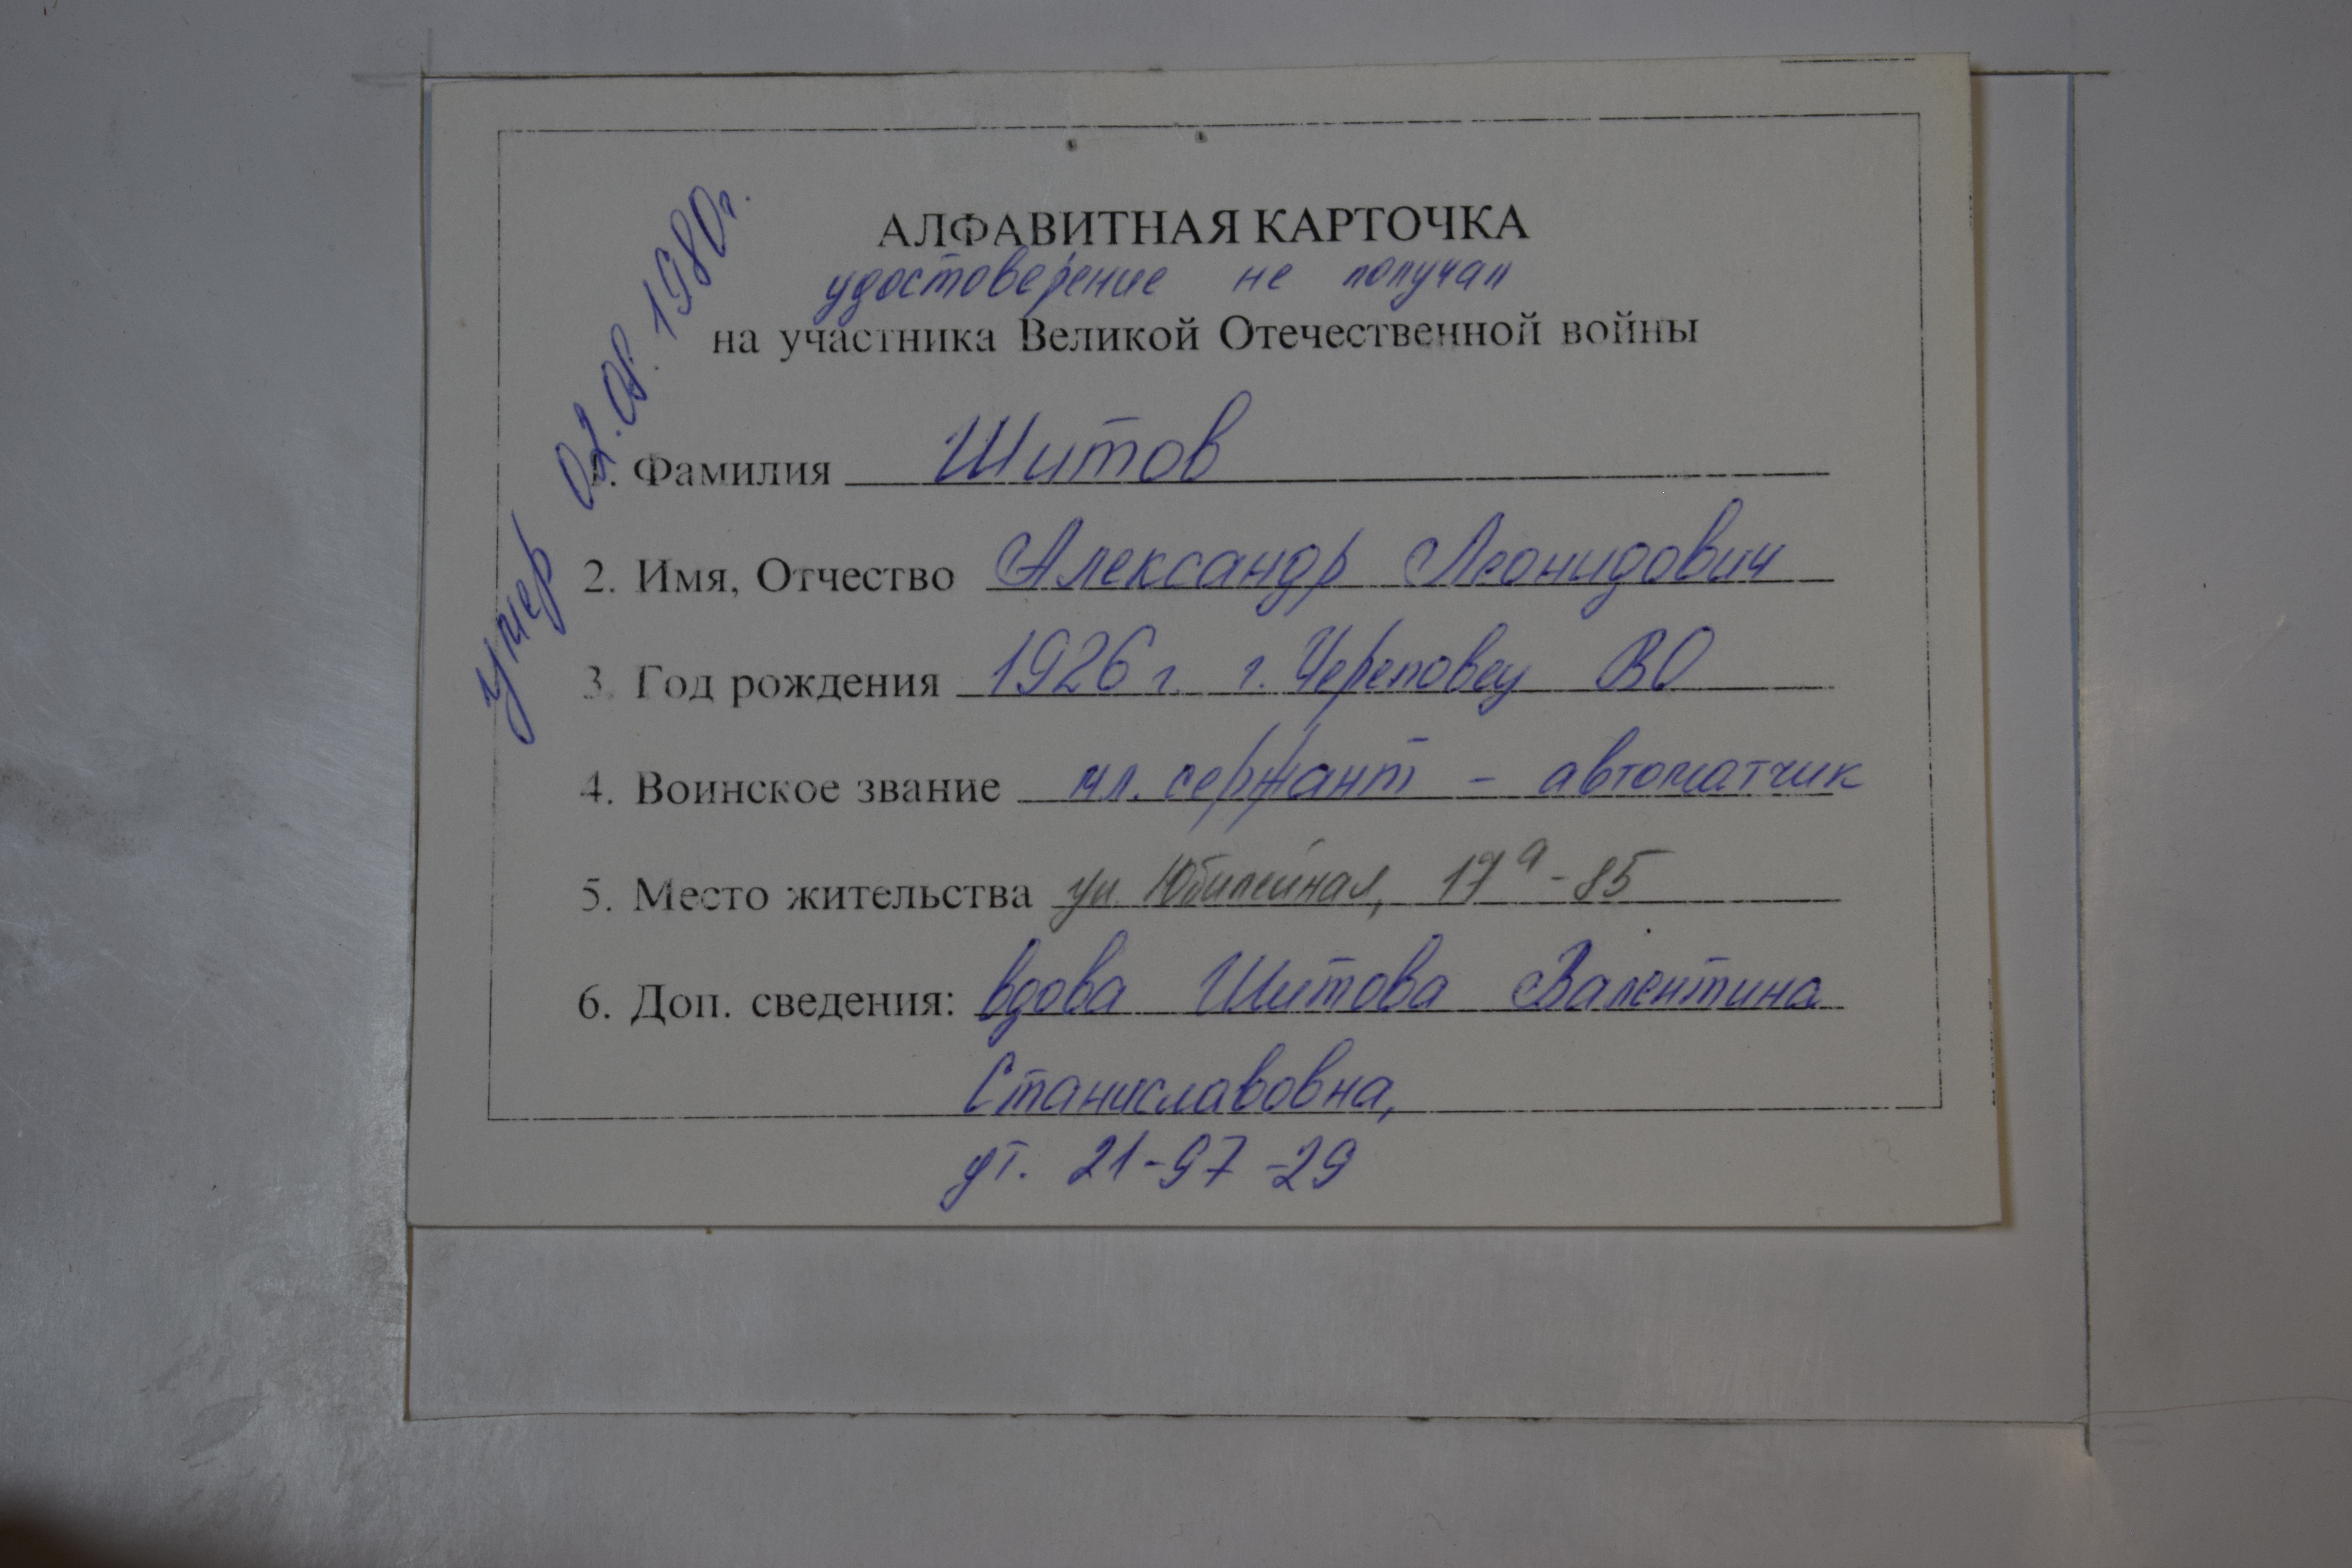 АЛФАВИТНАЯ КАРТОЧКА
удостоверение не получал
на участника Великой Отечественной войны
умер 02.08.1980г.
1. Фамилия Шитов
2. Имя, Отчество Александр Леонидович
3. Год рождения 1926 г. г. Череповец ВО
4. Воинское звание мл. сержант - автоматчик
5. Место жительства ул. Юбилейная, 17а-85
6. Доп. сведения: вдова Шитова Валентина
Станиславовна,
ут. 21-97-29